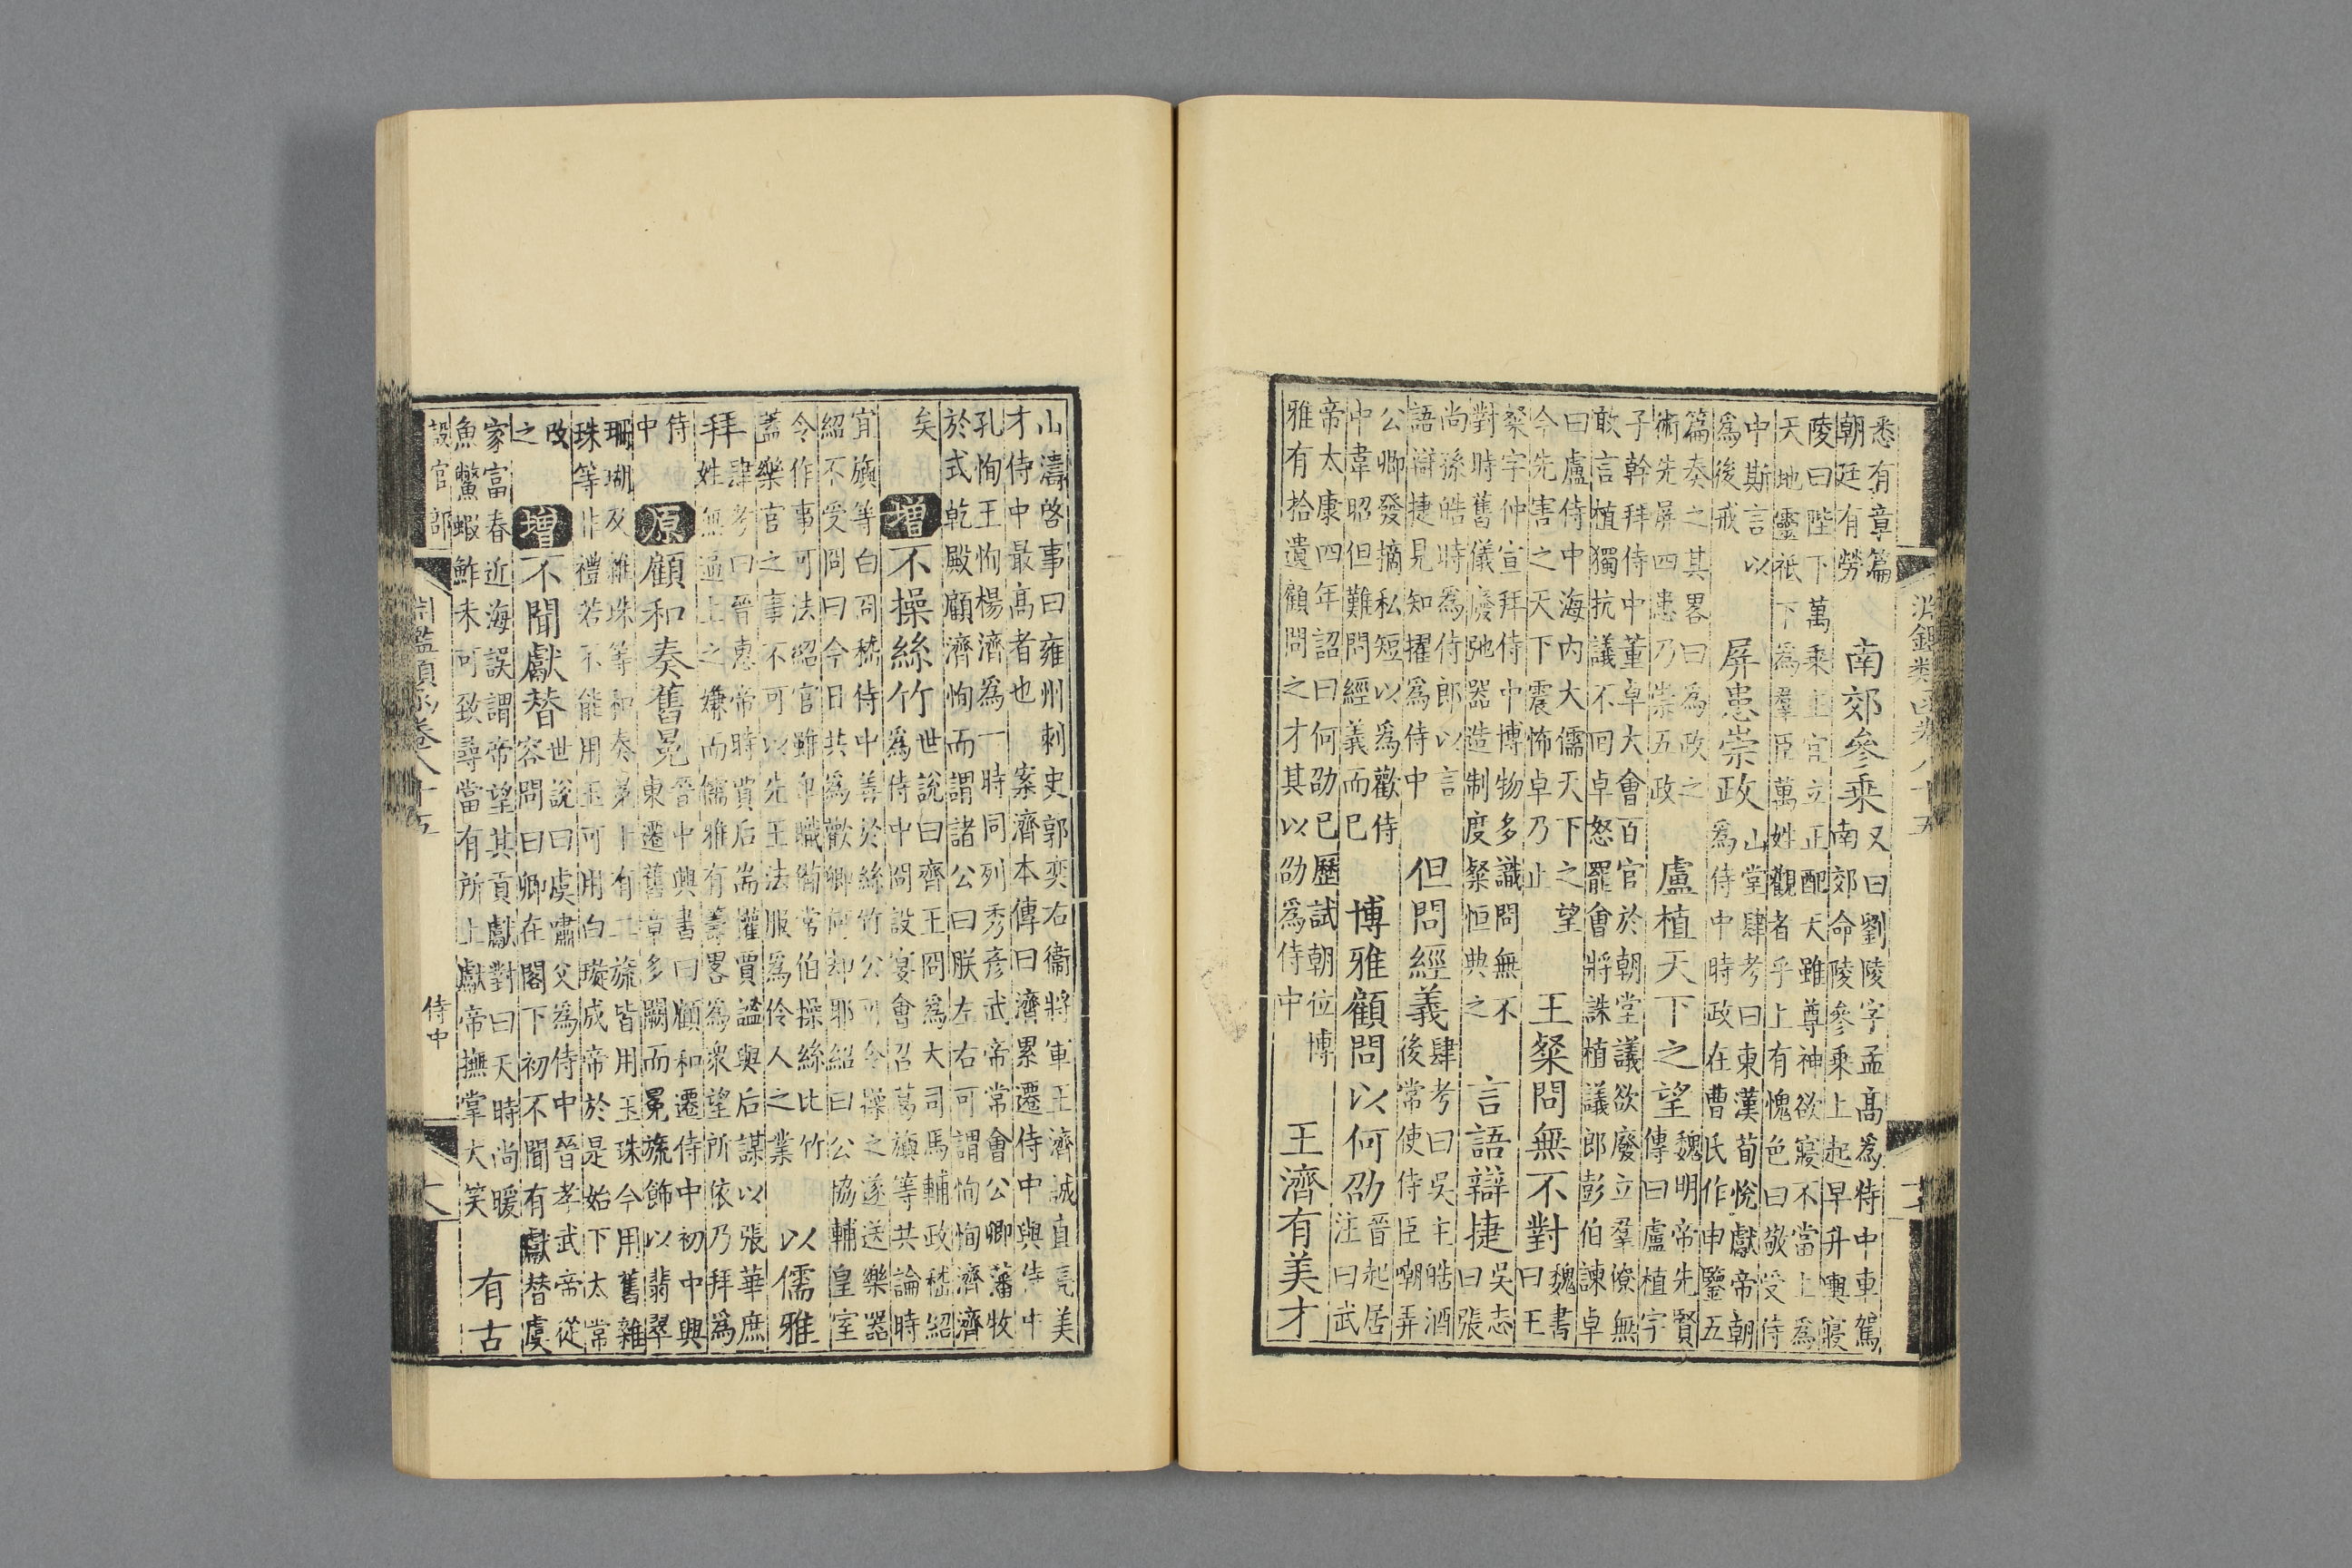 淵鑑類函卷八十五
悉有章篇
朝廷有勞
南郊參乘
又曰劉陵字孟高為侍中車駕
南郊命陵參乘上起早升輿寢
陵曰陛下萬乘主宜立正配天雖尊神欲寢不當上為
天地靈祇下為羣臣萬姓觀者乎上有愧色曰敬受侍
中斯言以
為後戒
屏患崇政
山堂肆考曰東漢荀悅獻帝朝
為侍中時政在曹氏作申鑒五
篇奏之其畧曰為政之
術先屏四患乃崇五政
盧植天下之望
魏明帝先賢
傳曰盧植字
子幹拜侍中董卓大會百官於朝堂議欲廢立羣僚無
敢言植獨抗議不同卓怒罷會將誅植議郎彭伯諫卓
曰盧侍中海內大儒天下之望
今先害之天下震怖卓乃止
王粲問無不對
魏書
曰王
粲字仲宣拜侍中博物多識問無不
對時舊儀廢弛器造制度粲恒典之
言語辯捷
吳志
曰張
尚孫皓時為侍郎以言
語辯捷見知擢為侍中
但問經義
肆考曰吳主皓酒
後常使侍臣嘲弄
公卿發摘私短以為歡侍
中韋昭但難問經義而已
博雅顧問以何劭
晉起居
注曰武
帝太康四年詔曰何劭已歷試朝位博
雅有拾遺顧問之才其以劭為侍中
王濟有美才
山濤啓事曰雍州刺史郭奕右衞將軍王濟誠直亮美
才侍中最高者也 案濟本傳曰濟累遷侍中與侍中
孔恂王恂楊濟為一時同列秀彥武帝常會公卿藩牧
於式乾殿顧濟恂而謂諸公曰朕左右可謂恂恂濟濟
矣
增
不操絲竹
世說曰齊王冏為大司馬輔政嵇紹
為侍中冏設宴會召葛旟等共論時
宜旟等白冏嵇侍中善於絲竹公可令操之遂送樂器
紹不受冏曰今日共為歡卿何却耶紹曰公協輔皇室
令作事可法紹官雖卑職備常伯操絲比竹
蓋樂官之事不可以先王法服為伶人之業
以儒雅
拜
肆考曰晉惠帝時賈后耑權賈謐與后謀以張華庶
姓無逼上之嫌而儒雅有籌畧為衆望所依乃拜為
侍
中
原
顧和奏舊冕
晉中興書曰顧和遷侍中初中興
東遷舊章多闕而冕旒飾以翡翠
珊瑚及雜珠等和奏冕十有二旒皆用玉珠今用舊雜
珠等非禮若不能用玉可用白璇成帝於是始下太常
改
之
增
不聞獻替
世說曰虞嘯父為侍中晉孝武帝從
容問曰卿在閣下初不聞有獻替虞
家富春近海誤謂帝望其貢獻對曰天時尚暖
魚鱉蝦鮓未可致尋當有所上獻帝撫掌大笑
有古
設官部
侍中